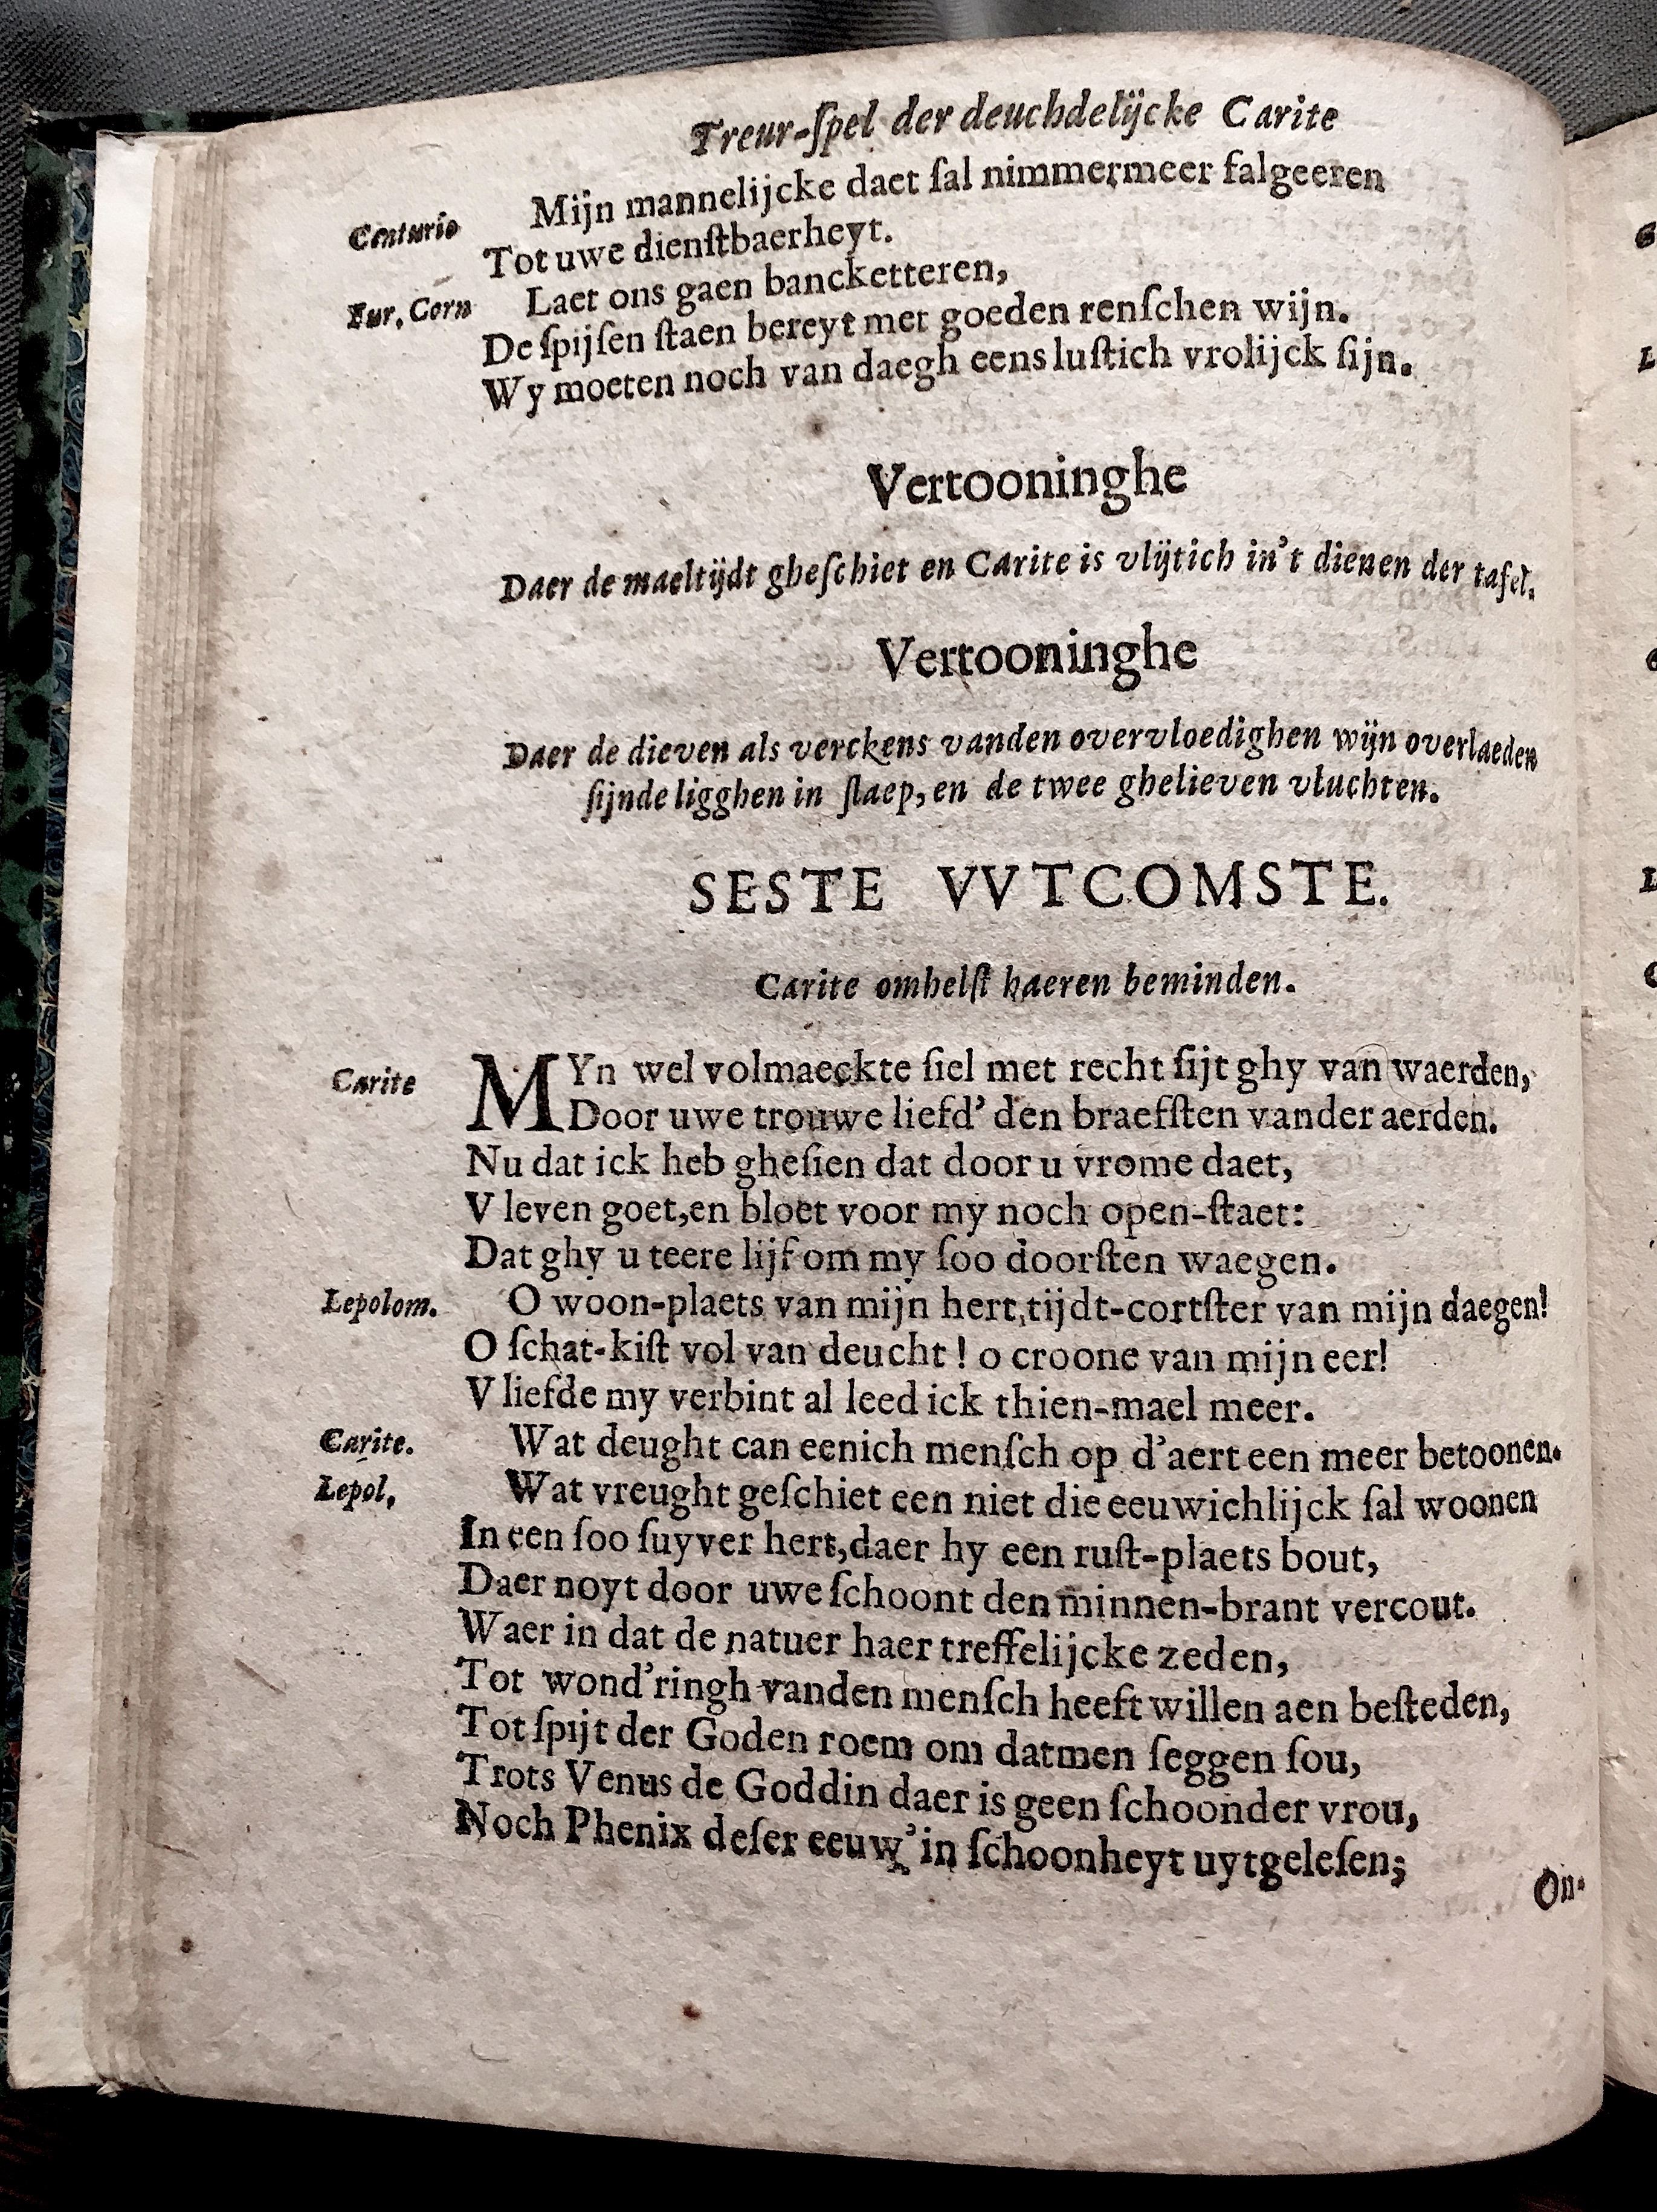 Treur-ſpel der deuchdelijcke Carite
Centurio Mijn mannelijcke daet ſal nimmermeer falgeeren
Tot uwe dienſtbaerheyt.
Fur. Corn Laet ons gaen bancketteren,
De ſpijſen ſtaen bereyt met goeden renſchen wijn.
Wy moeten noch van daegh eens luſtich vrolijck ſijn.
Vertooninghe
Daer de maeltijdt gheſchiet en Carite is vlijtich in't dienen der tafel.
Vertooninghe
Daer de dieven als verckens vanden overvloedighen wijn overlaeden
ſijnde ligghen in ſlaep, en de twee ghelieven vluchten.
SESTE VVTCOMSTE.
Carite omhelſt haeren beminden.
Carite MYn wel volmaeckte ſiel met recht ſijt ghy van waerden,
Door uwe trouwe liefd' den braefſten vander aerden.
Nu dat ick heb gheſien dat door u vrome daet,
V leven goet, en bloet voor my noch open-ſtaet:
Dat ghy u teere lijf om my ſoo doorſten waegen.
Lepolom. O woon-plaets van mijn hert, tijdt-cortſter van mijn daegen!
O ſchat-kiſt vol van deucht! o croone van mijn eer!
V liefde my verbint al leed ick thien-mael meer.
Carite. Wat deught can eenich menſch op d'aert een meer betoonen.
Lepol, Wat vreught geſchiet een niet die eeuwichlijck ſal woonen
In een ſoo ſuyver hert, daer hy een ruſt-plaets bout,
Daer noyt door uwe ſchoont den minnen-brant vercout.
Waer in dat de natuer haer treffelijcke zeden,
Tot wond'ringh vanden menſch heeft willen aen beſteden,
Tot ſpijt der Goden roem om datmen ſeggen ſou,
Trots Venus de Goddin daer is geen ſchoonder vrou,
Noch Phenix deſer eeuw' in ſchoonheyt uytgeleſen;
On-